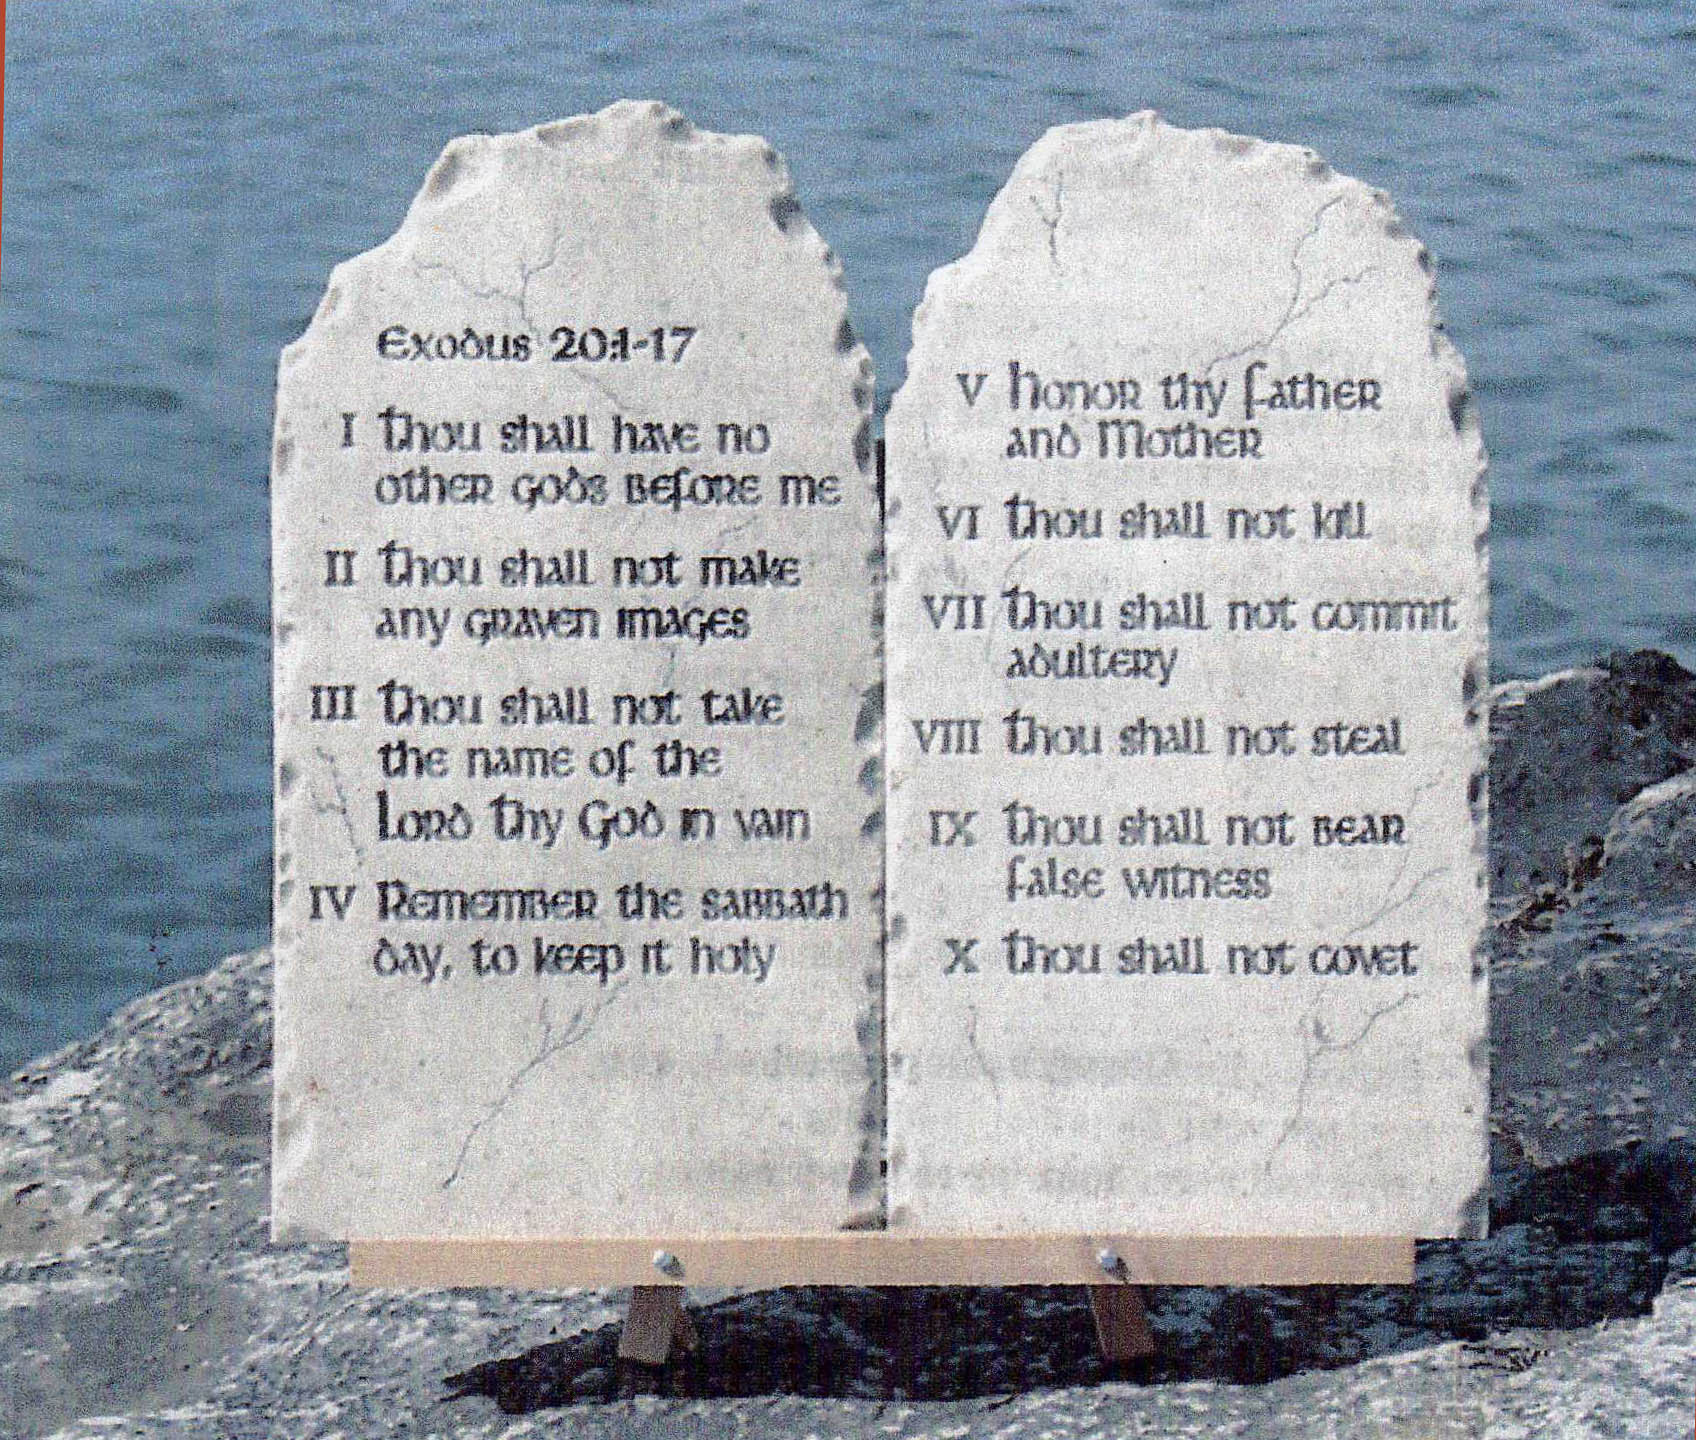 Exodus 20:1-17
I Thou shall have no
other gods before me
II Thou shall not make
any graven images
III Thou shall not take
the name of the
Lord Thy God in vain
IV Remember the sabbath
day, to keep it holy
V Honor thy father
and Mother
VI Thou shall not kill
VII Thou shall not commit
adultery
VIII Thou shall not steal
IX Thou shall not bear
false witness
X Thou shall not covet